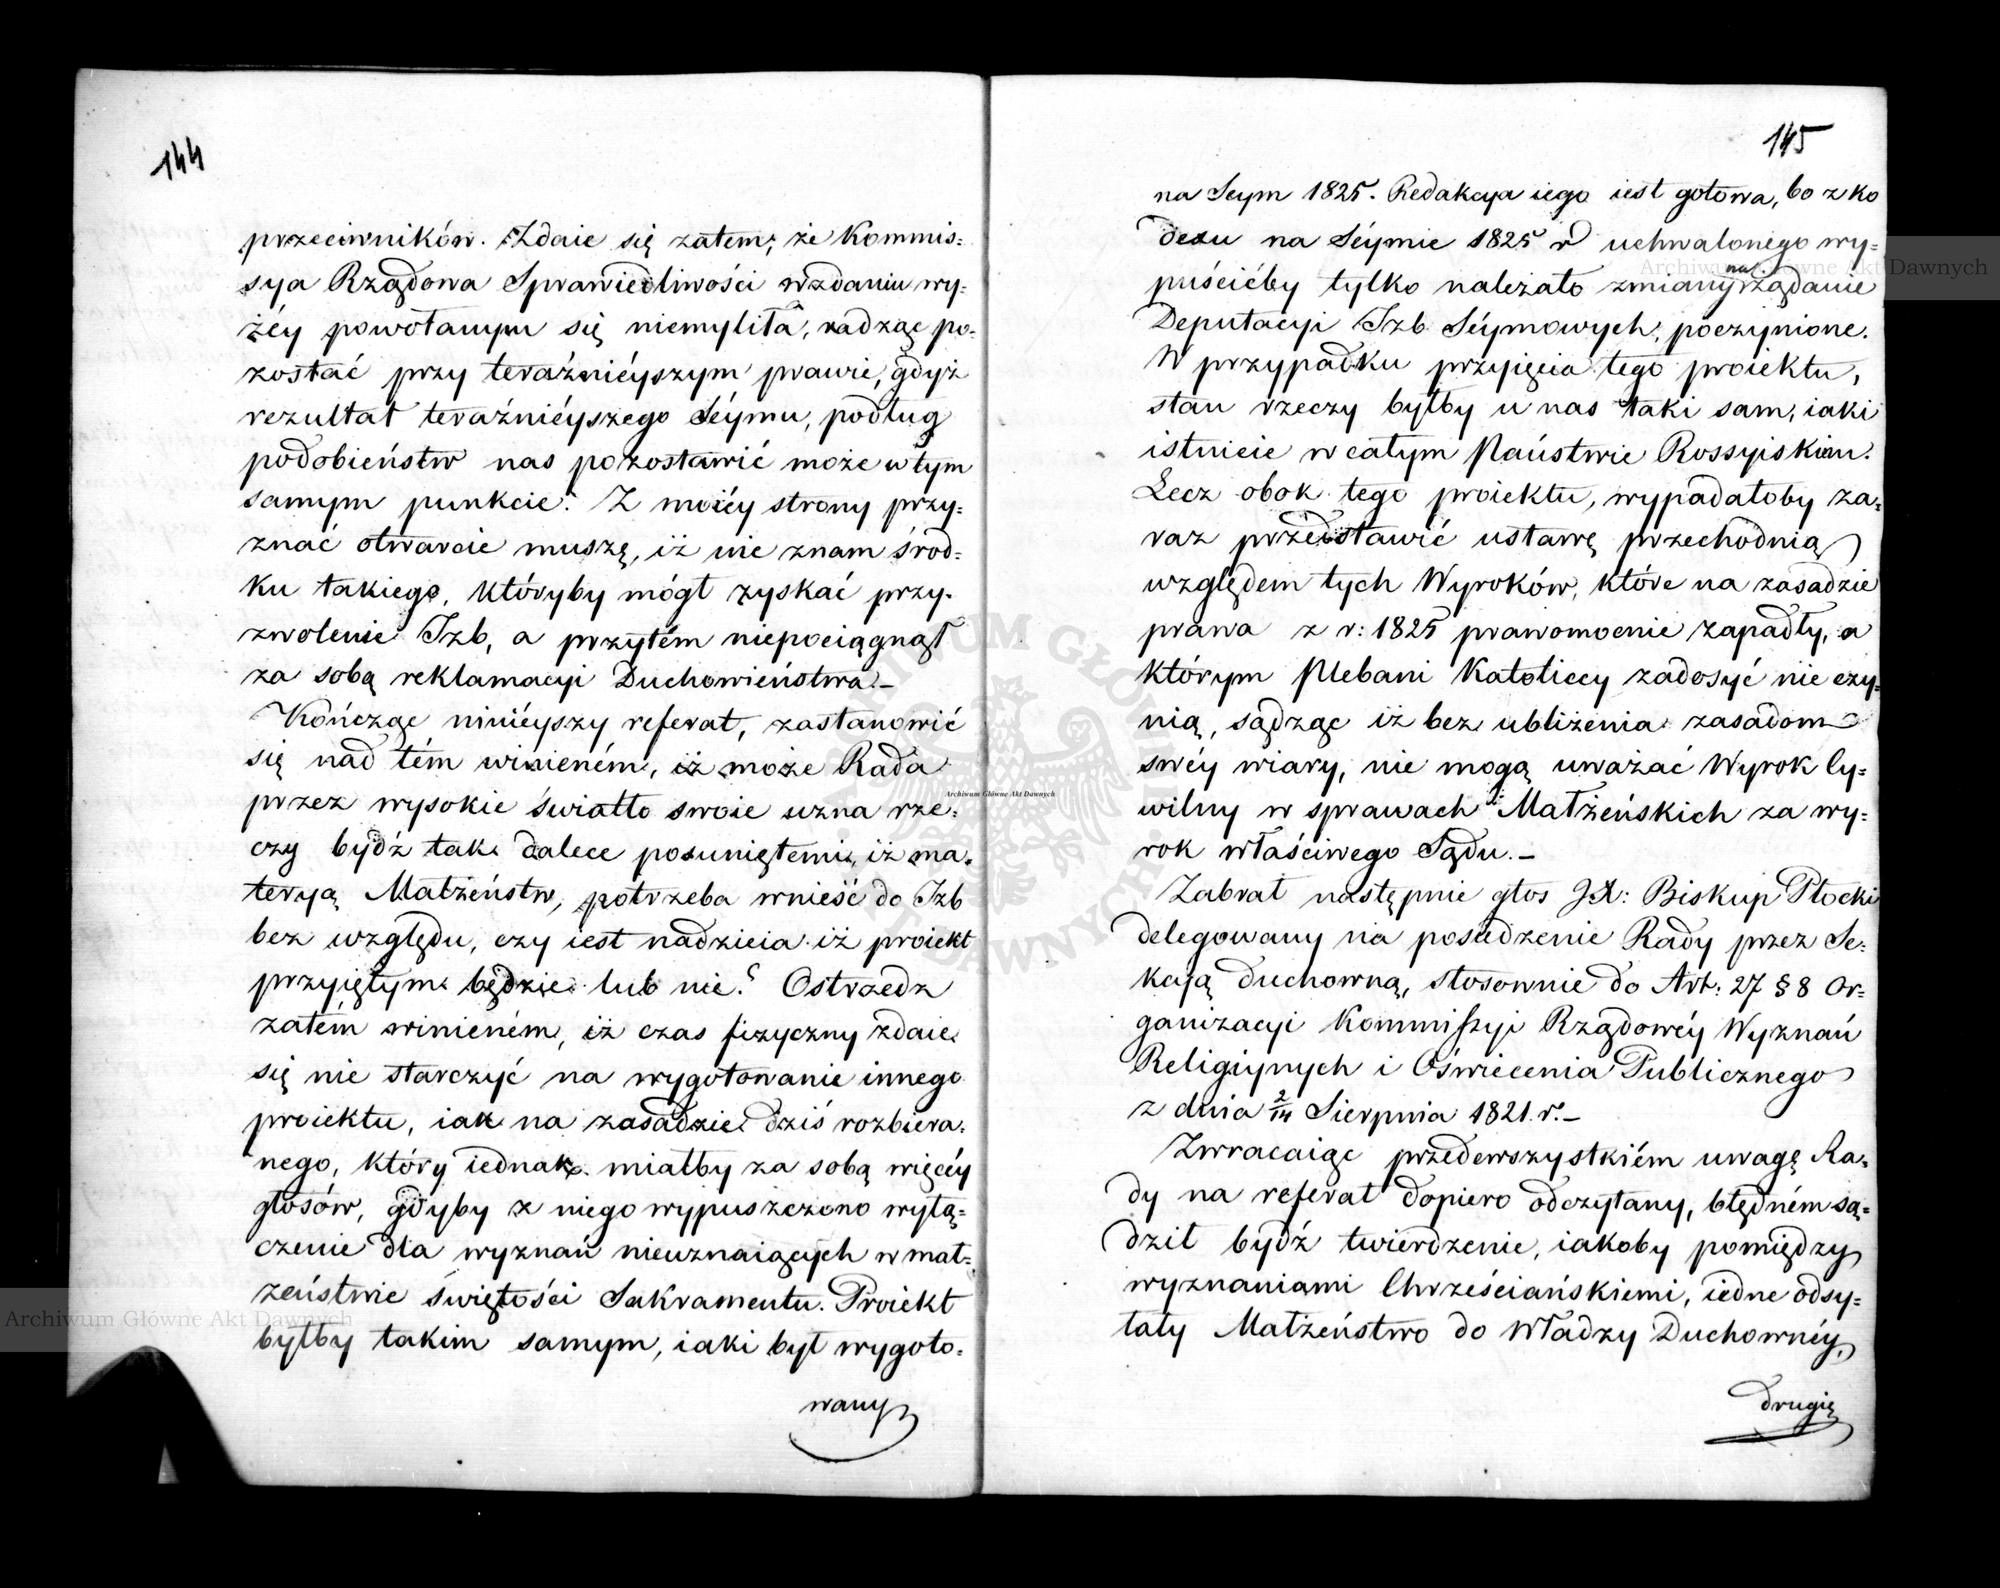 144
przeciwników. Zdaie się zatem, że Kommis=
sya Rządowa Sprawiedliwości w zdaniu wy=
żéy powołanym się niemyliła, radząc po=
zostać przy teraźnieyszym prawie, gdyż
rezultat teraźniéyszego Séymu, podług
podobieństw nas pozostawić może w tym
samym punkcie. Z moiéy strony przy=
znać otwarcie muszę, iż nie znam środ=
ku takiego, któryby mógł zyskać przy=
zwolenie Izb, a przytém niepociągnął
za sobą reklamacyi Duchowieństwa.—
Kończąc niniéyszy referat, zastanowić
się nad tém winieném, iż może Rada
przez wysokie światło swoie uzna rze=
czy bydź tak dalece posuniętemi, iż ma=
teryą Małżeństw, potrzeba wnieść do Izb
bez względu, czy iest nadzieia iż proiekt
przyiętym będzie lub nie? Ostrzedz
zatém winieném, iż czas fizyczny zdaie
się nie starczyć na wygotowanie innego
proiektu, iak na zasadzie dziś rozbiera=
nego, który iednak miałby za sobą więcéy
głosów, gdyby z niego wypuszczono wyłą=
czenie dla wyznań nieuznaiących w mał=
żeństwie świętości Sakramentu. Proiekt
byłby takim samym, iaki był wygoto=
wany
145
na Seym 1825. Redakcya iego iest gotowa, bo z ko
dexu na Séymie 1825 r uchwalonego wy=
puścićby tylko należało zmiany na żądanie
Deputacyi Izb Séymowych, poczynione.
W przypadku przyięcia tego proiektu,
stan rzeczy byłby u nas taki sam, iaki
istnieie w całym Państwie Rossyiskiem.
Lecz obok tego proiektu, wypadałoby za=
raz przedstawić ustawę przechodnią
względem tych Wyroków, które na zasadzie
prawa z r: 1825 prawomocnie zapadły, a
którym Plebani Katoliccy zadosyć nie czy=
nią, sądząc iż bez ubliżenia zasadom
swéy wiary, nie mogą uważać Wyrok Cy=
wilny w sprawach Małżeńskich za wy=
rok właściwego Sądu.—
Zabrał następnie głos J.X: Biskup Płocki
delegowany na posiedzenie Rady przez Se=
kcyą duchowną, stosownie do Art: 27 § 8 Or=
ganizacyi Kommissyi Rządowéy Wyznań
Religiynych i Oświecenia Publicznego
z dnia 2/14 Sierpnia 1821. r.—
Zwracaiąc przedewszystkiém uwagę Ra=
dy na referat dopiero odczytany, błędném są=
dził bydź twierdzenie, iakoby pomiędzy
wyznaniami Chrześciańskiemi, iedne odsy=
łały Małżeństwo do Władzy Duchownéy,
drugie
Archiwum Główne Akt Dawnych
Archiwum Główne Akt Dawnych
Archiwum Główne Akt Dawnych